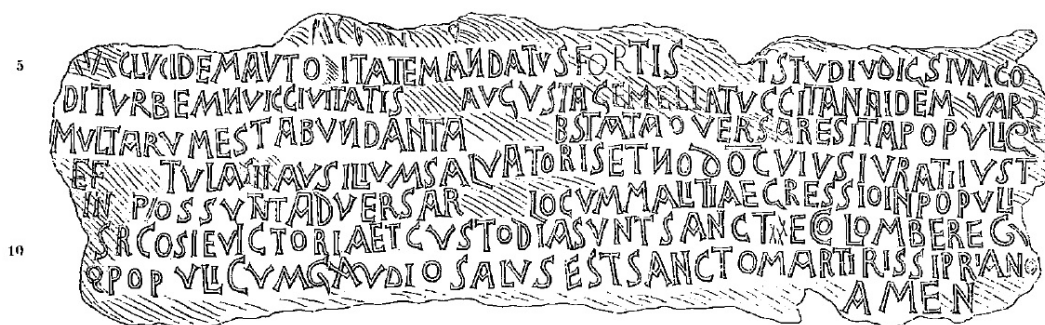 5
CLVCIDEM AVTO ITATE MANDATVS FORTIS ISTVDIVDICSTVMCO
DITVRBEMNVICCIVITATIS AVGVSTAGEMELLATVCCITANAIDEMVAR
MVLTARVMESTABVNDANTA BSTMTAOVERSARESITAPOPVLI
EF TVLA AVSILIVMSALVATORISETNODOCVIVSIVRATIIVST
IN POSSVNTADVERSAR LOCVMMALITIAECRESSIOINPOPVLI
SRCOSIEVICTORIAETCVSTODIASVNTSANCTXECOLOMBEREG
10
QPOPVLICVMGAVDIOSALVSESTSANCTOMARTIRISSIPRIANO
AMEN